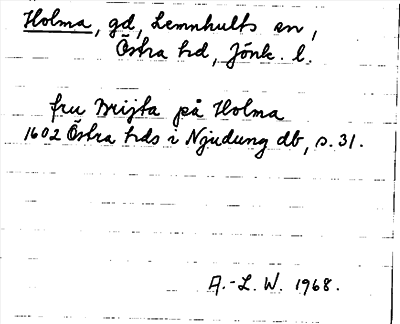 Holma, gd, Lemnhults sn,
Östra hd, Jönk. l.
fru Brijta på Holma
1602 Östra hds i Njudung db, s. 31.
A.-L. W. 1968.